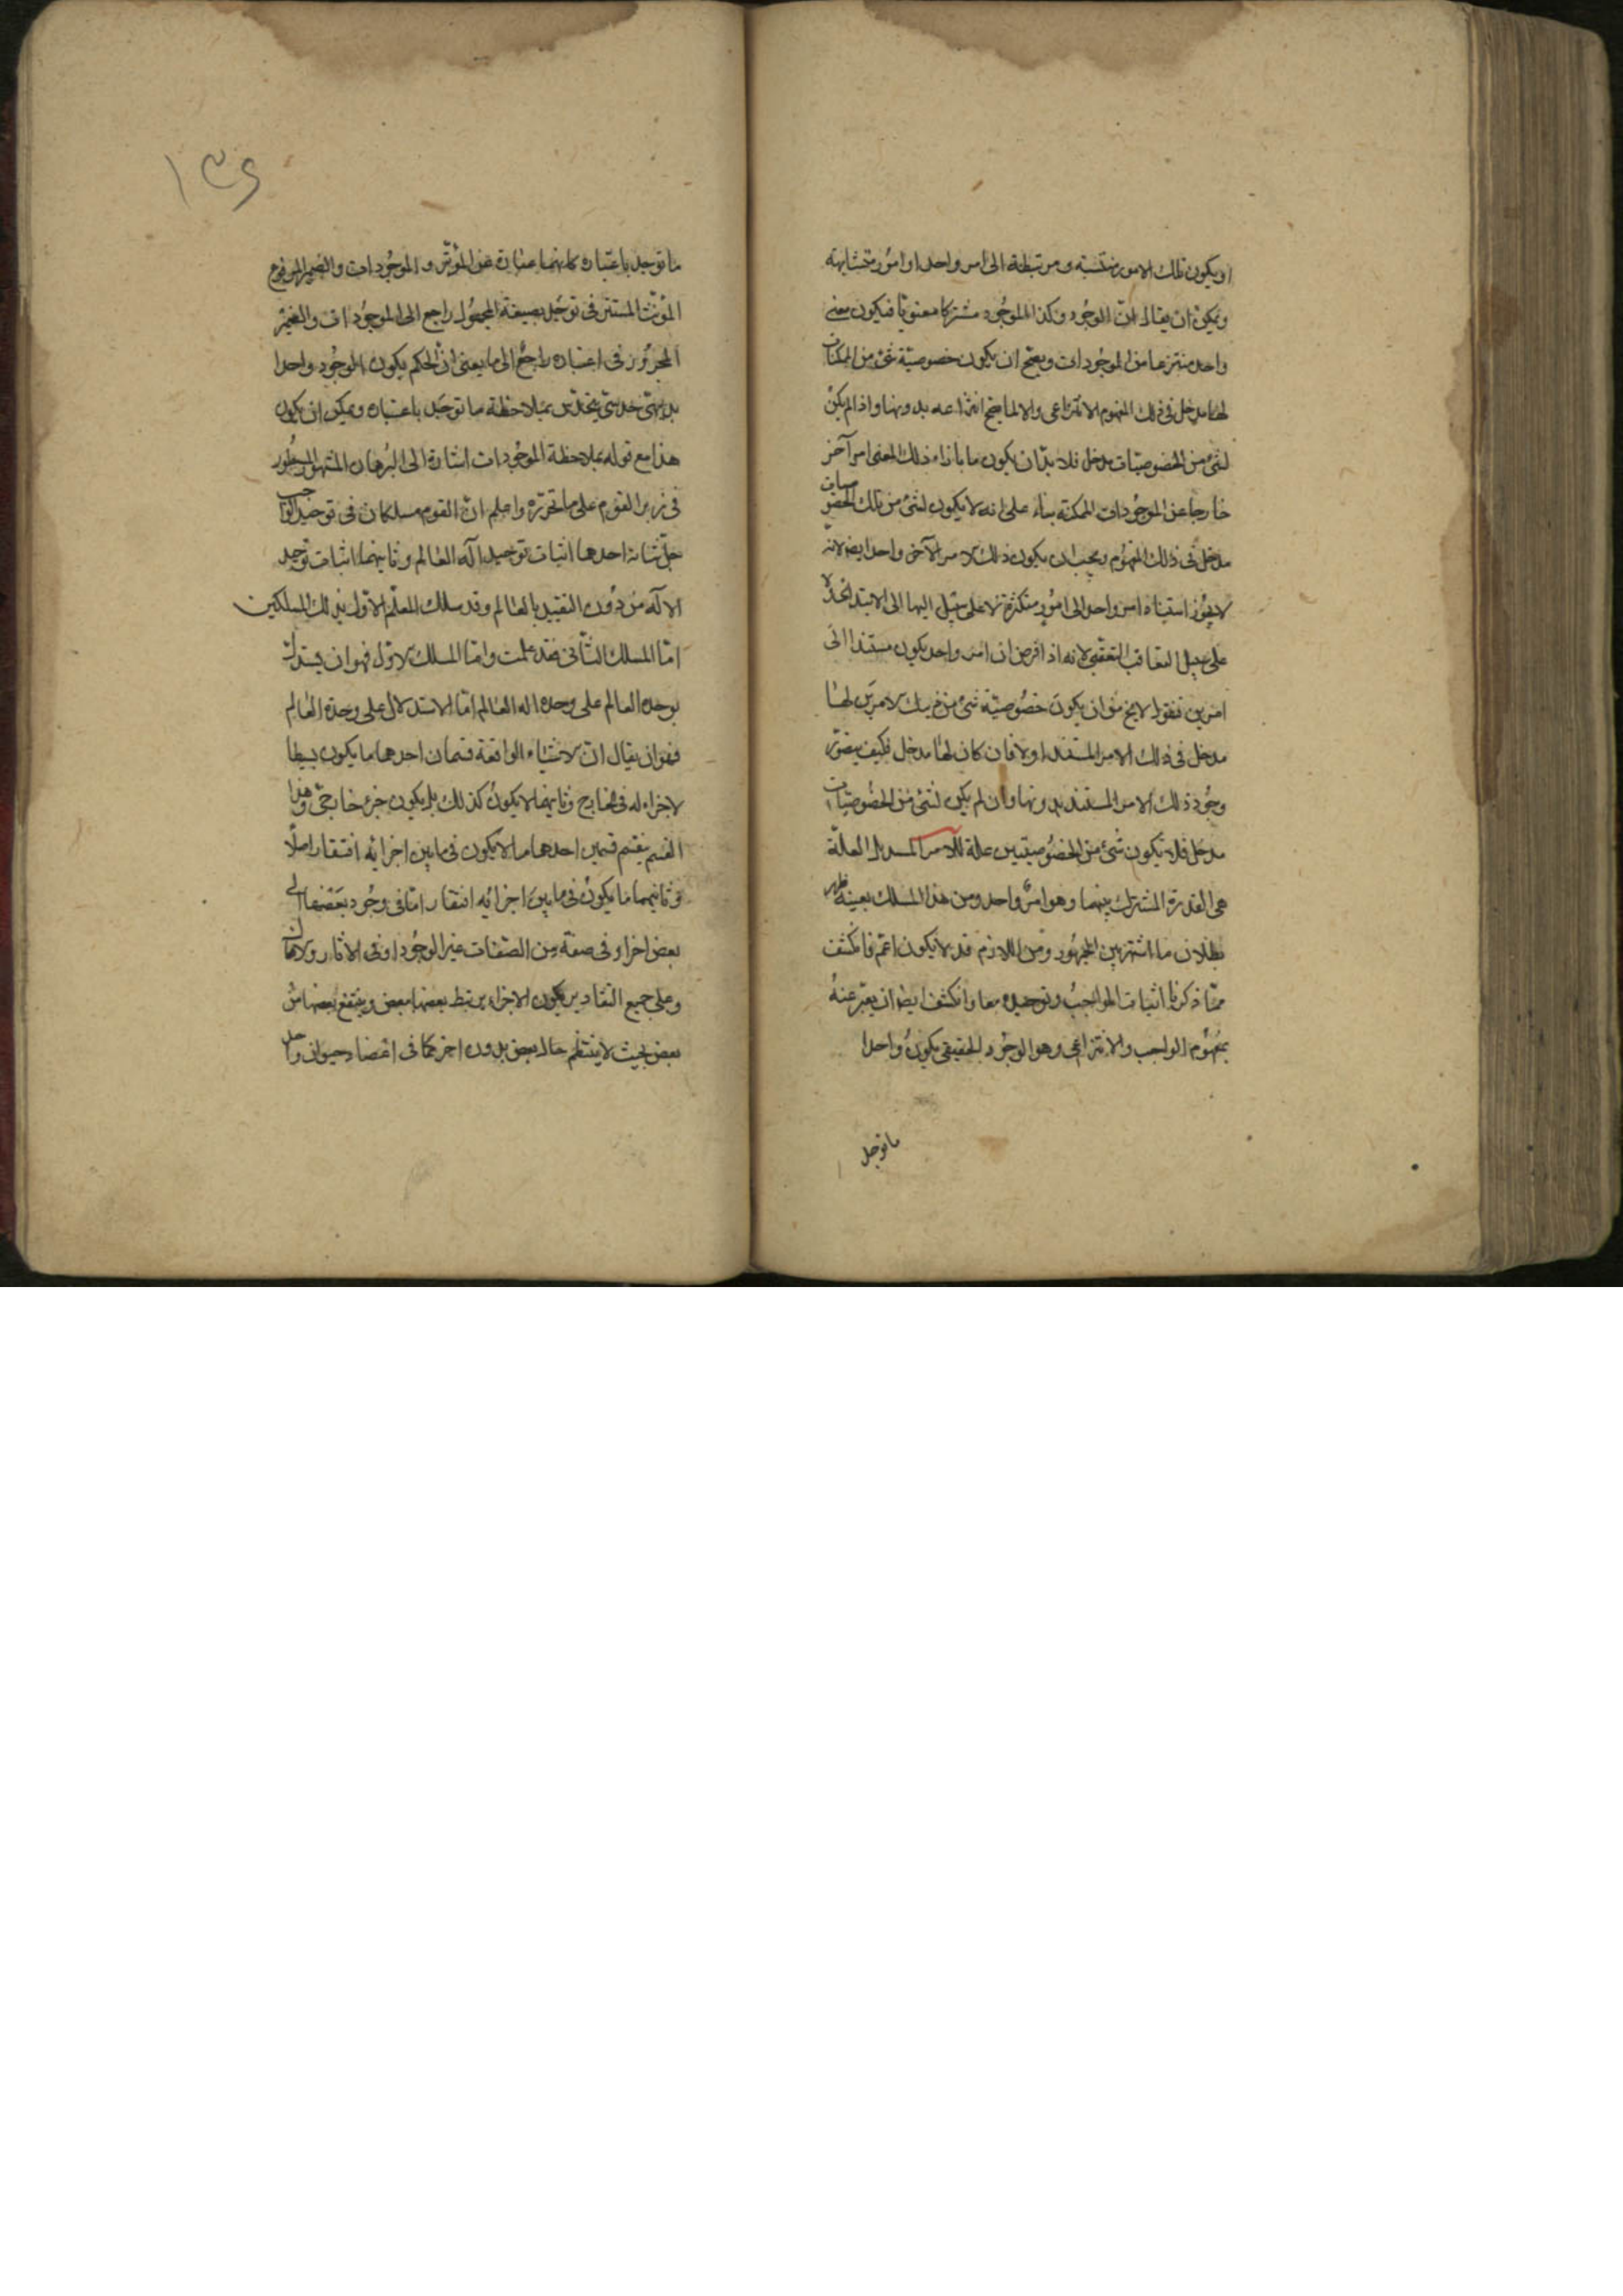 او يكون تلك الامور منتسبة ومرتبطة الى امر واحد او امور متشابهة
ويمكن ان يقال ان الوجود وكذا الموجود مشتركا معنويا فيكون معنى
واحد منتزعا من الموجودات ويصح ان يكون خصوصية شئ من الممكنات
لها مدخل فى ذلك المفهوم الانتزاعى والا لما صح انتزاعه بدونها واذا لم يكن
لشئ من الخصوصيات مدخل فلا بد ان يكون ما بازاء ذلك المعنى امر آخر
خارجا عن الموجودات الممكنة بناء على انه لا يكون لشئ من تلك الخصوصيات
مدخل فى ذلك المفهوم ويجب ان يكون ذلك الامر الآخر واحدا ايضا لانه
لا يجوز استناد امر واحد الى امور متكثرة لا على سبيل
على سبيل التعاقب لانه اذا فرض ان امر واحد يكون مستندا الى
امرين فنقول لا يخ من ان يكون خصوصية شئ من ذينك الامرين لها
مدخل فى ذلك الامر المستند اولا فان كان لها مدخل فكيف يتصور
وجود ذلك الامر المستند بدونها وان لم يكن لشئ من الخصوصيات
مدخل فلا يكون شئ من الخصوصيتين علة للامر بل العلة
هى القدرة المشترك بينهما وهو امر واحد ومن هذا المسلك بعينه ظهر
بطلان ما اشتهر بين الجمهور ومن اللازم قد لا يكون اعم فانكشف
مما ذكرنا اثبات الواجب وتوحيده معا وانكشف ايضا ان يعبر عنه
بمفهوم الواجب والانتزاعى وهو الوجود الحقيقى يكون واحدا
ما توجد
١٣٦
ما توجد باعتباره كانهما عبارة عن المؤثر والموجودات والضمير المرفوع
المؤنث المستتر فى توجد بصيغة المجهول راجع الى الموجودات والضمير
المجرور فى اعتباره راجع الى ما يعنى ان الحكم بكون الموجود واحدا
بديهى حدسى بملاحظة ما توجد باعتباره ويمكن ان يكون
هذا مع قوله بملاحظة الموجودات اشارة الى البرهان المشهور المسطور
فى زبر القوم على ما نحرره واعلم ان القوم مسلكان فى توحيد الواجب
جل شانه احدهما اثبات توحيد اله العالم وثانيهما اثبات توحيد
الاله من دون التقييد بالعالم وقد سلك المعلم الاول بذلك المسلكين
اما المسلك الثانى فقد علمت واما المسلك الاول فهو ان يستدل
بوحدة العالم على وحدة اله العالم اما الاستدلال على وحدة العالم
فهو ان يقال ان الاشياء الواقعة قسمان احدهما ما يكون بسيطا
لا جزاء له فى الخارج وثانيهما لا يكون كذلك بل يكون جزء خارجى وهذا
القسم ينقسم قسمين احدهما ما لا يكون فى ما بين اجزائه افتقار اصلا
وثانيهما ما يكون فى ما بين اجزائه افتقار اما فى وجود بعضها الى
بعض اخر او فى صفة من الصفات غير الوجود او فى الاثار
وعلى جميع التقادير يكون الاجزاء يرتبط بعضها ببعض وينتفع بعضها من
بعض بحيث لا ينتظم حال بعض بدون اخر كما فى اعضاء حيوان واحد